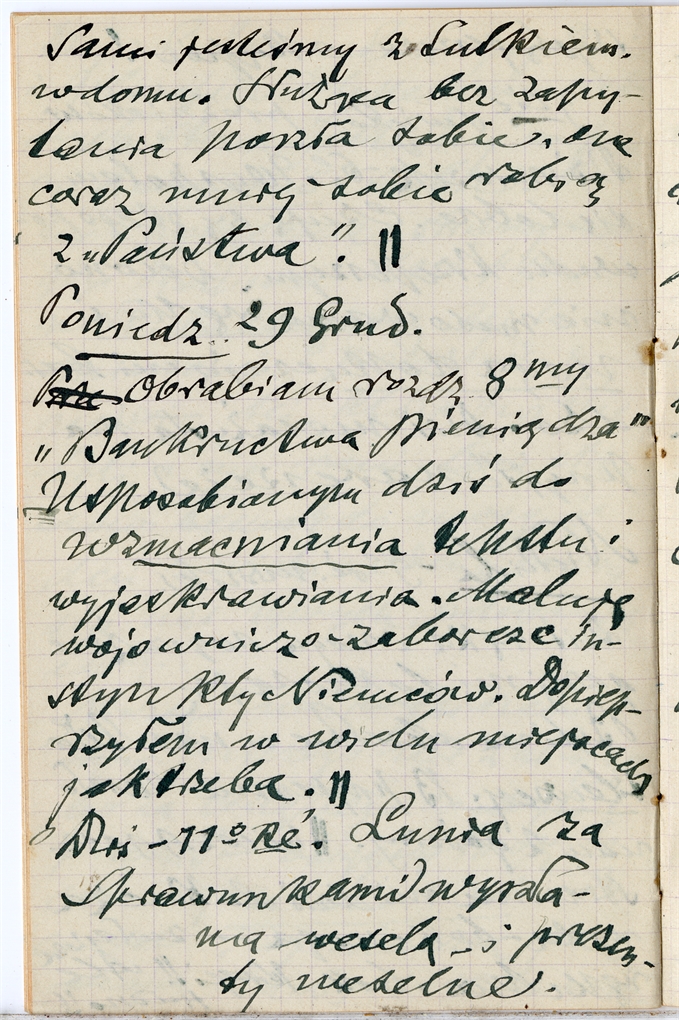 Sami jesteśmy z Lulkiem.
w domu. Służąca bez zapy-
tania poszła sobie, one
coraz mniej sobie robią
z „Państwa". ||
Poniedz. 29 Grud.
Obrabiam rozdz 8 my
„Bankructwa Pieniądza"
Usposobionym dziś do
wzmacniania tekstu i
wyjaskrawiania. Maluję
wojowniczo-zaborcze in-
stynkty Niemców. Dopiep-
rzyłem w wielu miejscach
jak trzeba. ||
Dziś – 11° Ré. Lunia za
sprawunkami wyszła –
na wesela – i prezen-
ty weselne.